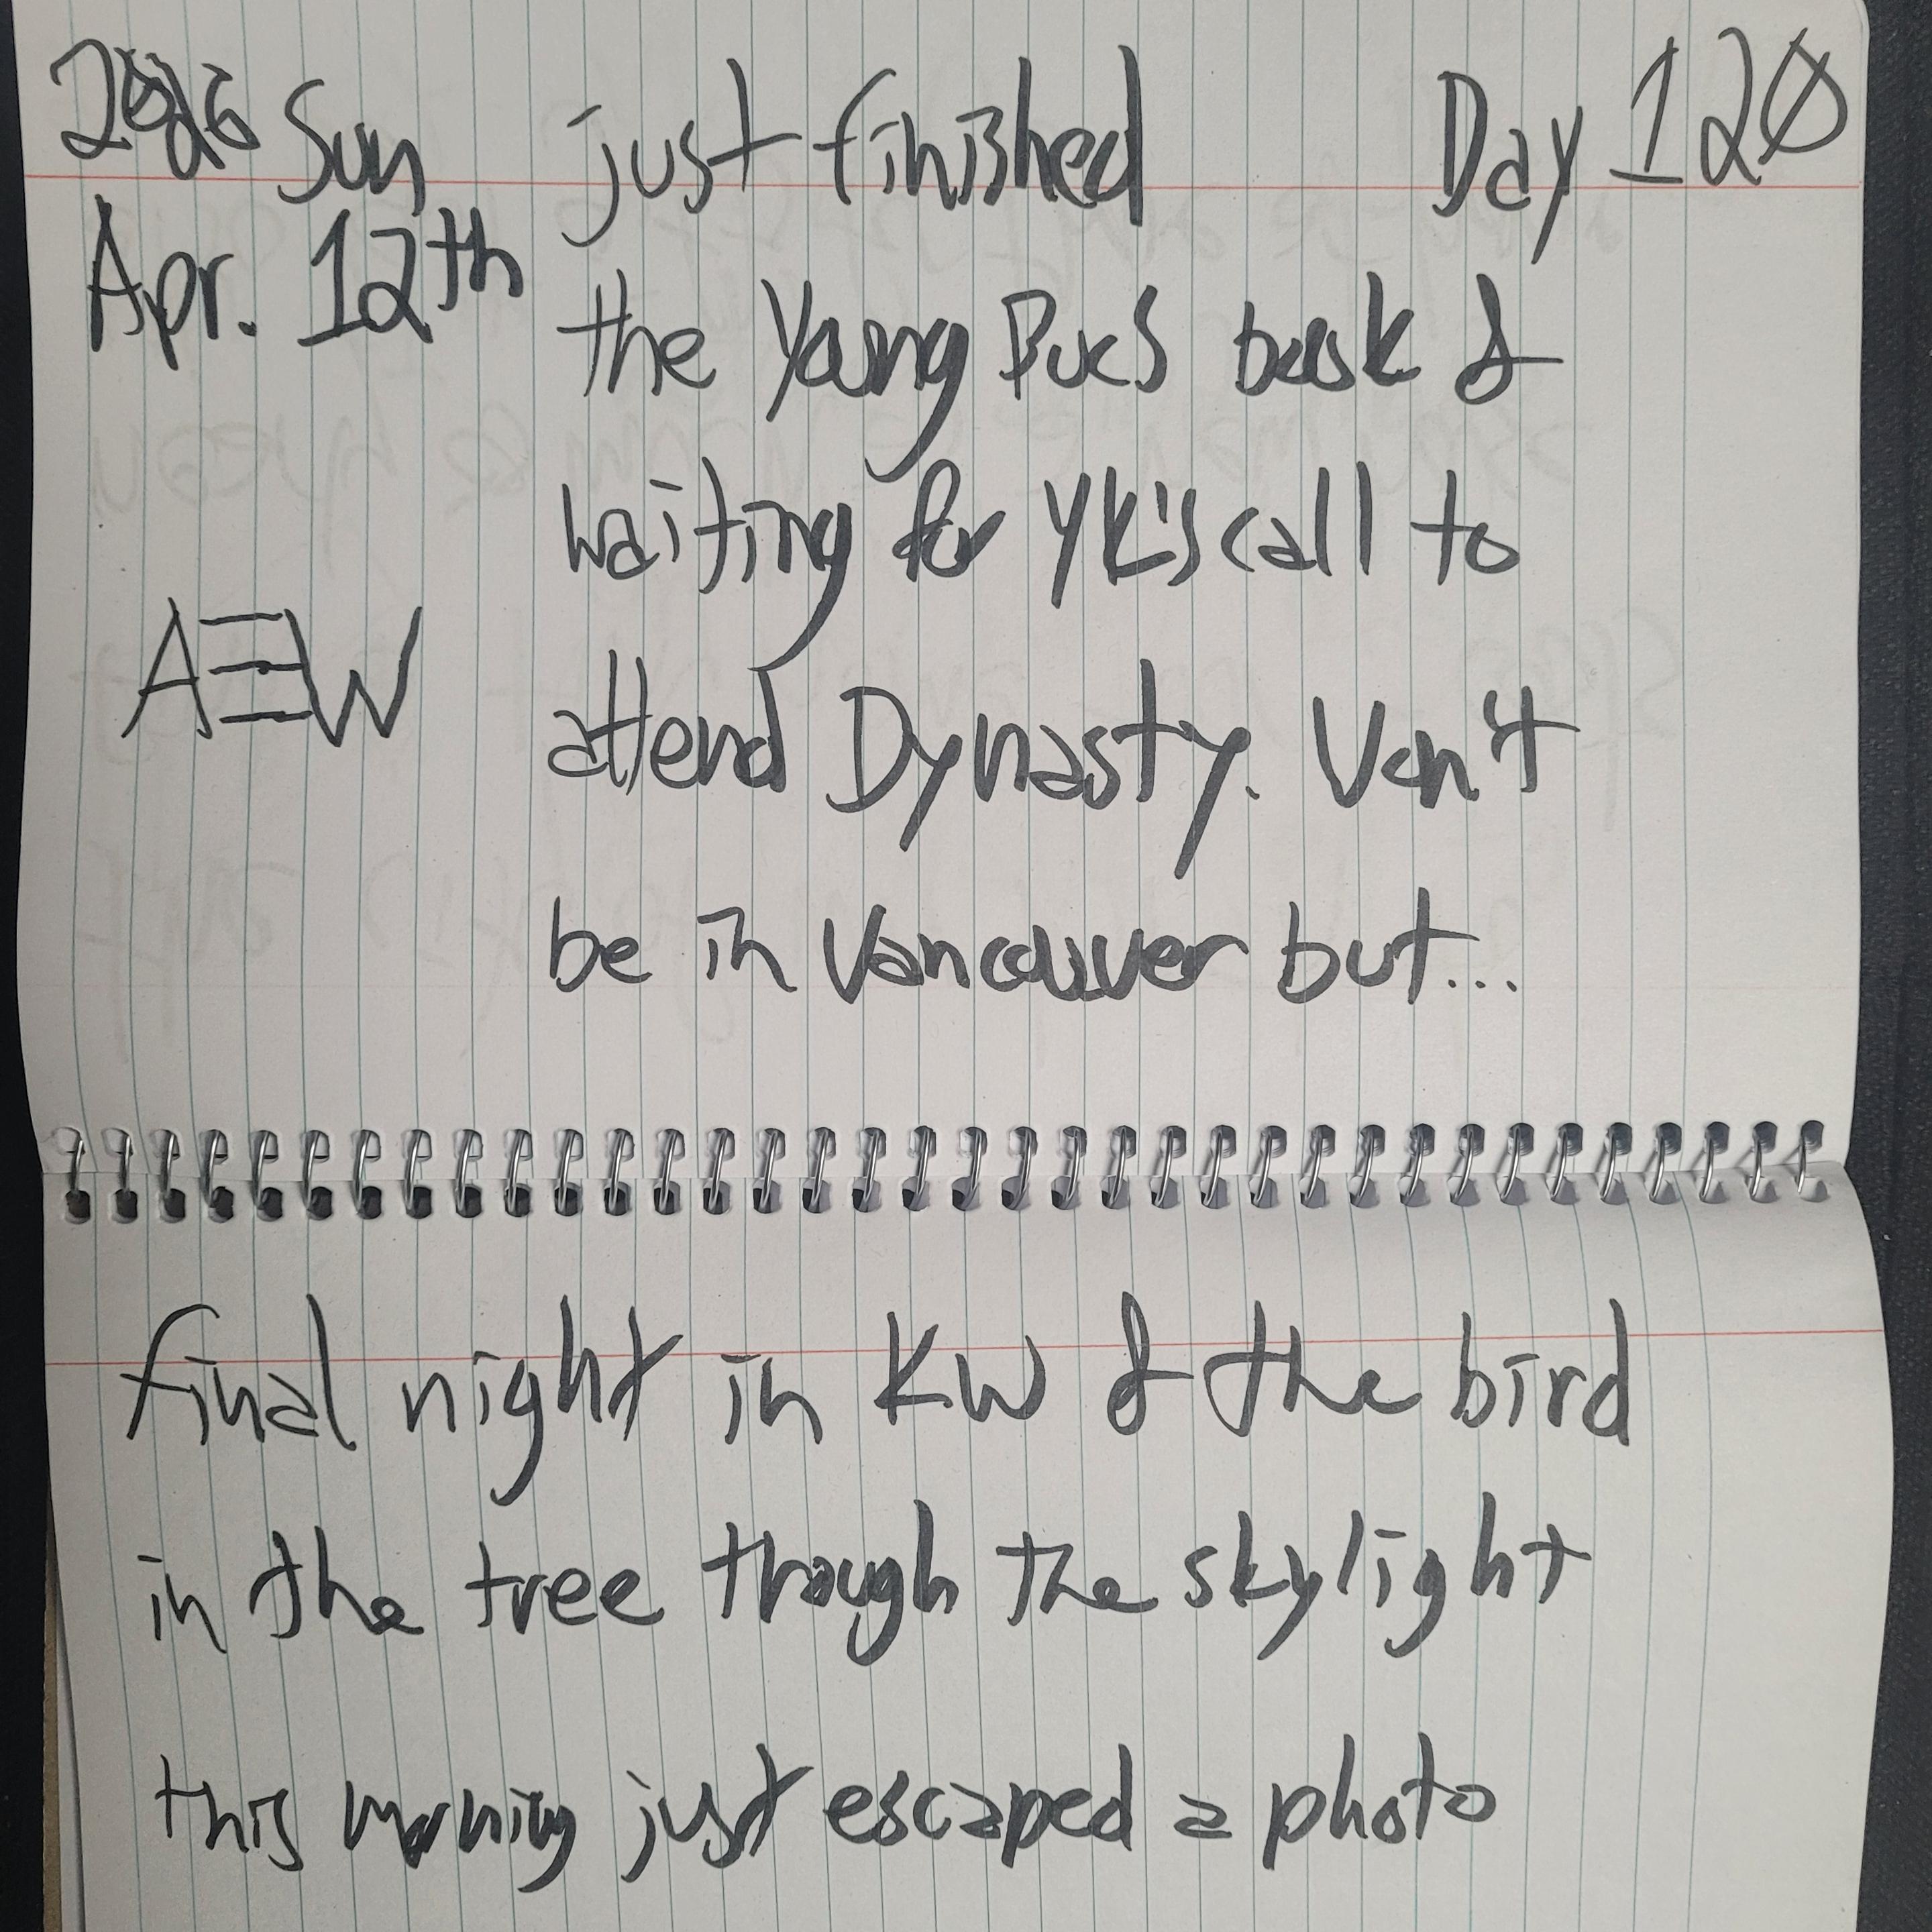 2026 Sun just finished Day 120
Apr. 12th
the Young Bucs book &
waiting for YK's call to
AEW
attend Dynasty. Won't
be in Vancouver but...
final night in KW & the bird
in the tree through the skylight
this morning just escaped a photo